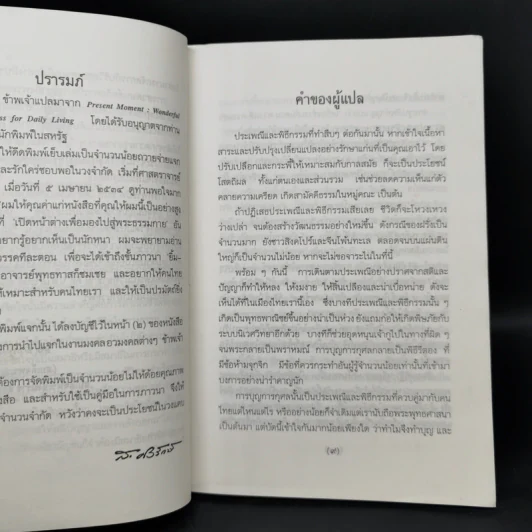 ปรารมภ์
ข้าพเจ้าแปลมาจาก Present Moment : Wonderful
for Daily Living โดยได้รับอนุญาตจากท่าน
นักพิมพ์ในสหรัฐ
ให้ตีพิมพ์เย็บเล่มเป็นจำนวนน้อยถวายจ่ายแจก
และรักใคร่ชอบพอในวงจำกัด เริ่มที่ศาสตราจารย์
เมื่อวันที่ ๕ เมษายน ๒๕๓๔ ดูท่านพอใจมาก
ผมให้คุณค่าแก่หนังสือที่คุณให้ผมนี้เป็นอย่างสูง
ที่ 'เปิดหน้าต่างเพื่อมองไปสู่พระธรรมกาย' อัน
อยากรู้อยากเห็นเป็นนักหนา ผมจะพยายามอ่าน
วรรคทีละตอน เพื่อจะได้เข้าถึงขั้นภาวนา
อาจารย์พุทธทาสก็ชมเชย และอยากให้คนไทย
ให้เหมาะสำหรับคนไทยเรา และให้เป็นปรมัตถ์ยิ่ง
พิมพ์แจกนั้น ได้ลงบัญชีไว้ในหน้า (๒) ของหนังสือ
การนำไปแจกในงานมงคลอวมงคลต่างๆ ข้าพเจ้า
ต้องการจัดพิมพ์เป็นจำนวนน้อยไม่ให้ด้อยคุณภาพ
และสำหรับใช้เป็นคู่มือในการภาวนา จึงให้
จำนวนจำกัด หวังว่าคงจะเป็นประโยชน์ในวงแคบ
คำของผู้แปล
ประเพณีและพิธีกรรมที่ทำสืบๆ ต่อกันมานั้น หากเข้าใจเนื้อหา
สาระและปรับปรุงเปลี่ยนแปลงอย่างรักษาแก่นที่เป็นคุณเอาไว้ โดย
ปรับเปลือกและกระพี้ให้เหมาะสมกับกาลสมัย ก็จะเป็นประโยชน์
โสตถิผล ทั้งแก่ตนเองและส่วนรวม เช่นช่วยลดความเห็นแก่ตัว
คลายความเครียด เกิดสามัคคีธรรมในหมู่คณะ เป็นต้น
ถ้าปฏิเสธประเพณีและพิธีกรรมเสียเลย ชีวิตก็จะโหวงเหวง
ว่างเปล่า จนต้องสร้างวัฒนธรรมอย่างใหม่ขึ้น ดังกรณีของฝรั่งเป็น
จำนวนมาก ยังชาวสิงคโปร์และจีนโพ้นทะเล ตลอดจนบนแผ่นดิน
ใหญ่ก็เป็นจำนวนไม่น้อย หากจะไม่ขอจาระไนในที่นี้
พร้อม ๆ กันนี้ การเดินตามประเพณีอย่างปราศจากสติและ
ปัญญาก็ทำให้หลง ให้งมงาย ให้สิ้นเปลืองและน่าเบื่อหน่าย ดังจะ
เห็นได้ที่ในเมืองไทยเรานี้เอง ซึ่งบางทีประเพณีและพิธีกรรมนั้น ๆ
เกิดเป็นพุทธพาณิชย์ขึ้นอย่างน่าเป็นห่วง ยังแถมก่อให้เกิดพิษภัยกับ
ระบบนิเวศวิทยาอีกด้วย บางทีก็ช่วยอุดหนุนเจ้ากูไปในทางที่ผิด ๆ
จนพระกลายเป็นพราหมณ์ การบุญการกุศลกลายเป็นพิธีรีตอง ที่
มีข้อห้ามจุกจิก มีข้อที่ควรกระทำอันผู้รู้จำนวนน้อยเท่านั้นที่เข้ามา
บงการอย่างน่ารำคาญนัก
การบุญการกุศลนั้นเป็นประเพณีและพิธีกรรมที่ควบคู่มากับคน
ไทยแต่ไหนแต่ไร หรืออย่างน้อยก็จำเดิมแต่เรานับถือพระพุทธศาสนา
เป็นต้นมา แต่บัดนี้เข้าใจกันมากน้อยเพียงใด ว่าทำไมจึงทำบุญ และ
(๙)